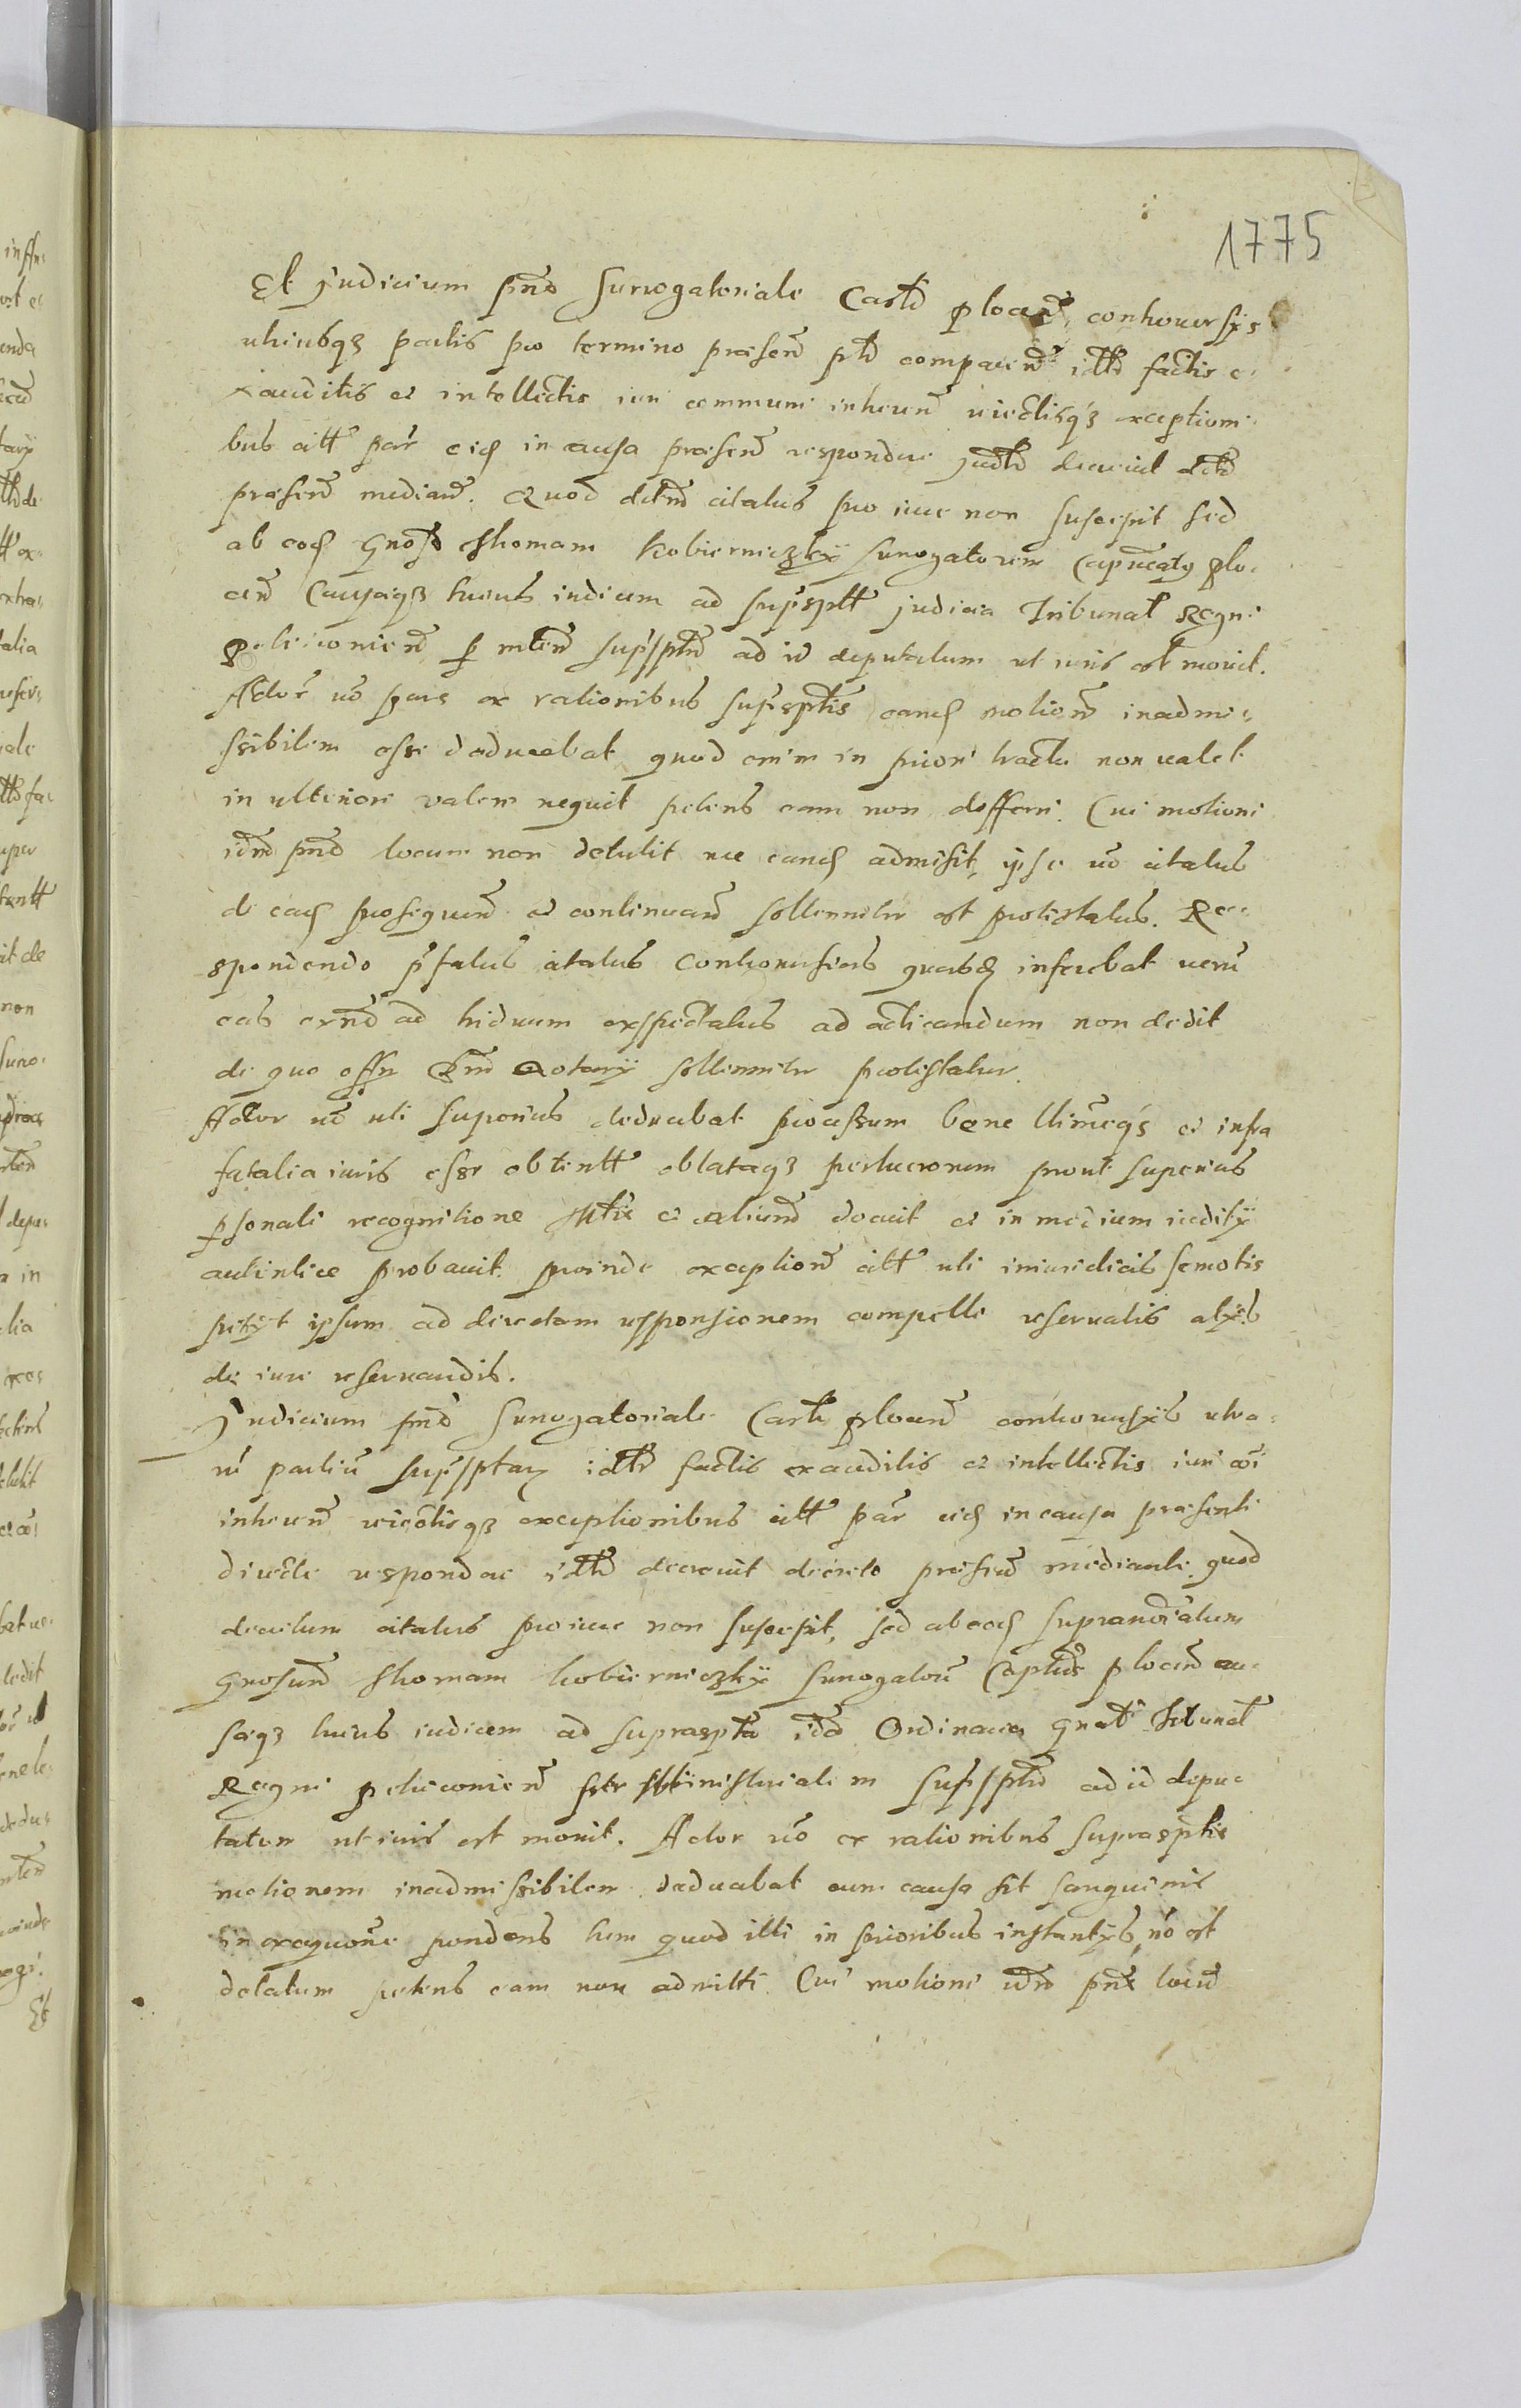 1775
Et Judicium pñs Surrogatoriale Castrẽ plocẽn, controuersijs
utriusqꝫ partis pro termino præsenẽ pttẽ comparenẽ idttẽ factis e-
xauditis et intellectis iuri communi inhærenẽ reiectisqꝫ exceptioni-
bus citt̃ par̃ eidẽ in causa præsenẽ respondere judttẽ decreuit dcttẽ
præsenẽ mediañ. Quod decrm citatus pro iure non suscepit sed
ab eodẽ Gnoso Thomam Kobierniczkij Surrogatorem Capneatq̃ plo-
cẽn Causæqꝫ huius iudicem ad suprasptt̃ judicia Tribunal Regni
Petriconienẽ per mtẽm suprasptm ad id deputatum ut iuris est mouit.
Actor ũo pars ex rationibus suprasptis eandẽ motionẽ inadmi-
ssibilem esse deducebat quod enim in priori tractu non ualet
in ulteriori valere nequit petens eam non differri. Cui motioni
idm pñs locum non detulit nec eandẽ admisit, ipse ũo citatus
de eadẽ prosequenẽ et continuanẽ sollenniter est protestatus. Re-
spondendo præfatus citatus Controuersias quasdẽ inferebat uerũ
eas ad triduum expectatus ad acticandum non dedit
de quo offm Notarij sollenniter protestatur.
Actor ũo uti superius deducebat processum bene ltimeqꝫ et infra
fatalia iuris esse obtentt̃ oblataqꝫ perlucrorum prout superius
personali recognitione mtrix et aliunde docuit et in medium reditij
autentice probauit. proinde exceptionẽ citt̃ uti iniuridicis semotis
petijt ipsum ad directam responsionem compelli reseruatis alijs
de iure reseruandis.
Judicium pñs Surrogatoriale Castrẽ plocẽn controuersijs utra-
rũ partiũ suprasptarum idttẽ factis exauditis et intellectis iuri coĩ
inhærenẽ reiectisqꝫ exceptionibus citt̃ par̃ eidẽ in causa præsenti
directe respondere idttẽ decreuit decreto præsenẽ mediante. quod
decretum citatus pro iure non suscepit, sed ab eodẽ supranoiatum
Gnosum Thomam Kobierniczkij Surrogatorẽ Captus plocẽn cau-
sæqꝫ huius iudicem ad suprasptã Ordinaria Gnal Tribunal
Regni Petriconienẽ per Ministerialem suprasptm ad id depu-
tatum ut iuris est mouit. Actor ũo ex rationibus suprasptis
motionem inadmissibilem deducebat cum causa sit sanguinis
in exequõne pendens tum quod illi in prioribus instantijs nõ est
delatum petens eam non admitti. Cui motioni idm pñs locũ